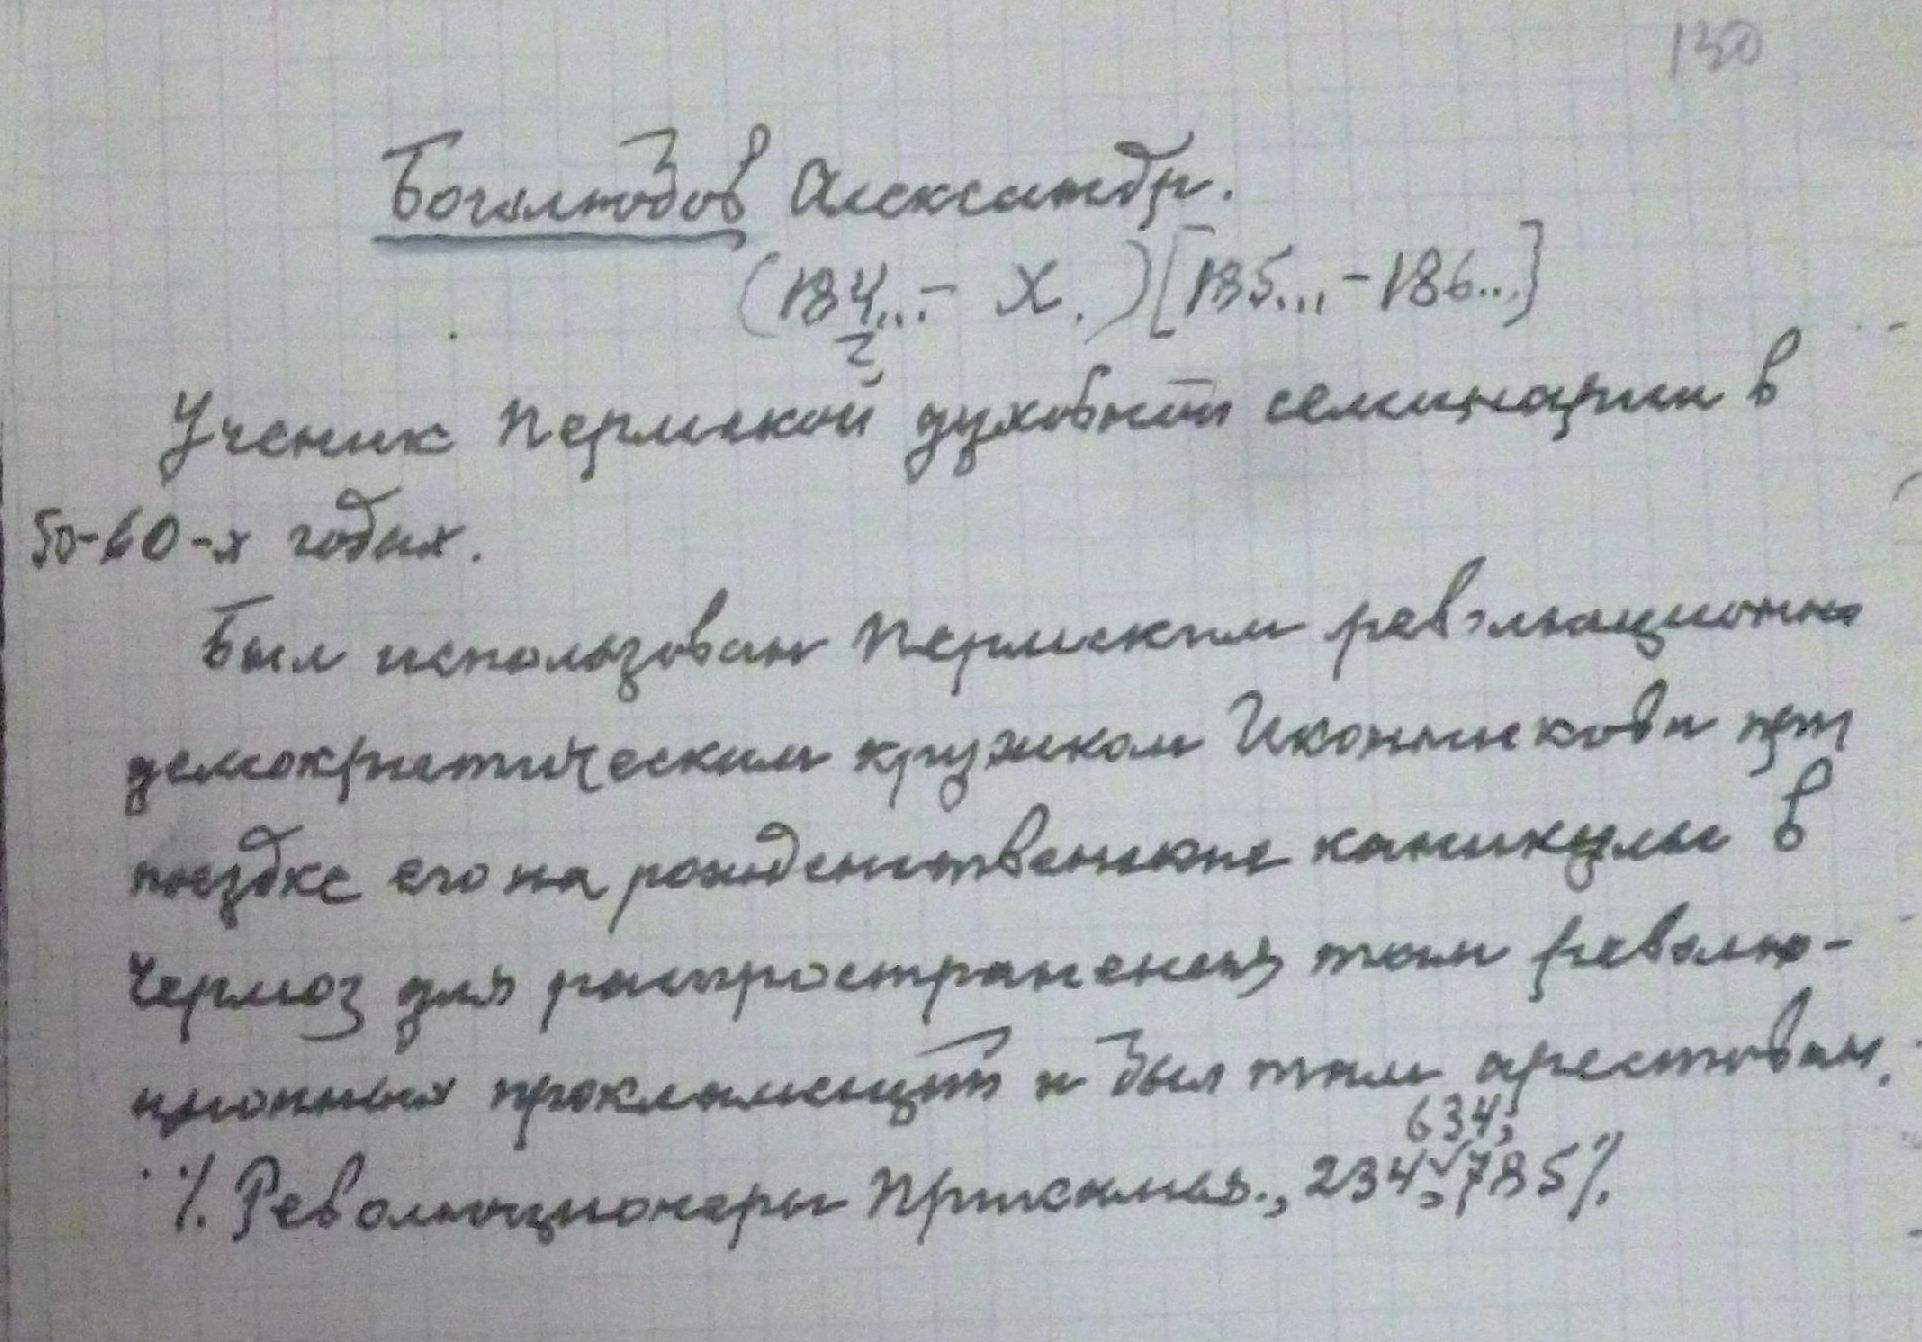 130
Боголюбов Александр.
(184...- X.) [185...-186...]
?
Ученик Пермской духовной семинарии в
50-60-х годах.
Был использован Пермским революционно
демократическим кружком Иконникова при
поездке его на рождественские каникулы в
Чермоз для распространения там револю-
ционных прокламаций и был там арестован.
634;
·/. Революционеры Прикамья., 234;√785/.